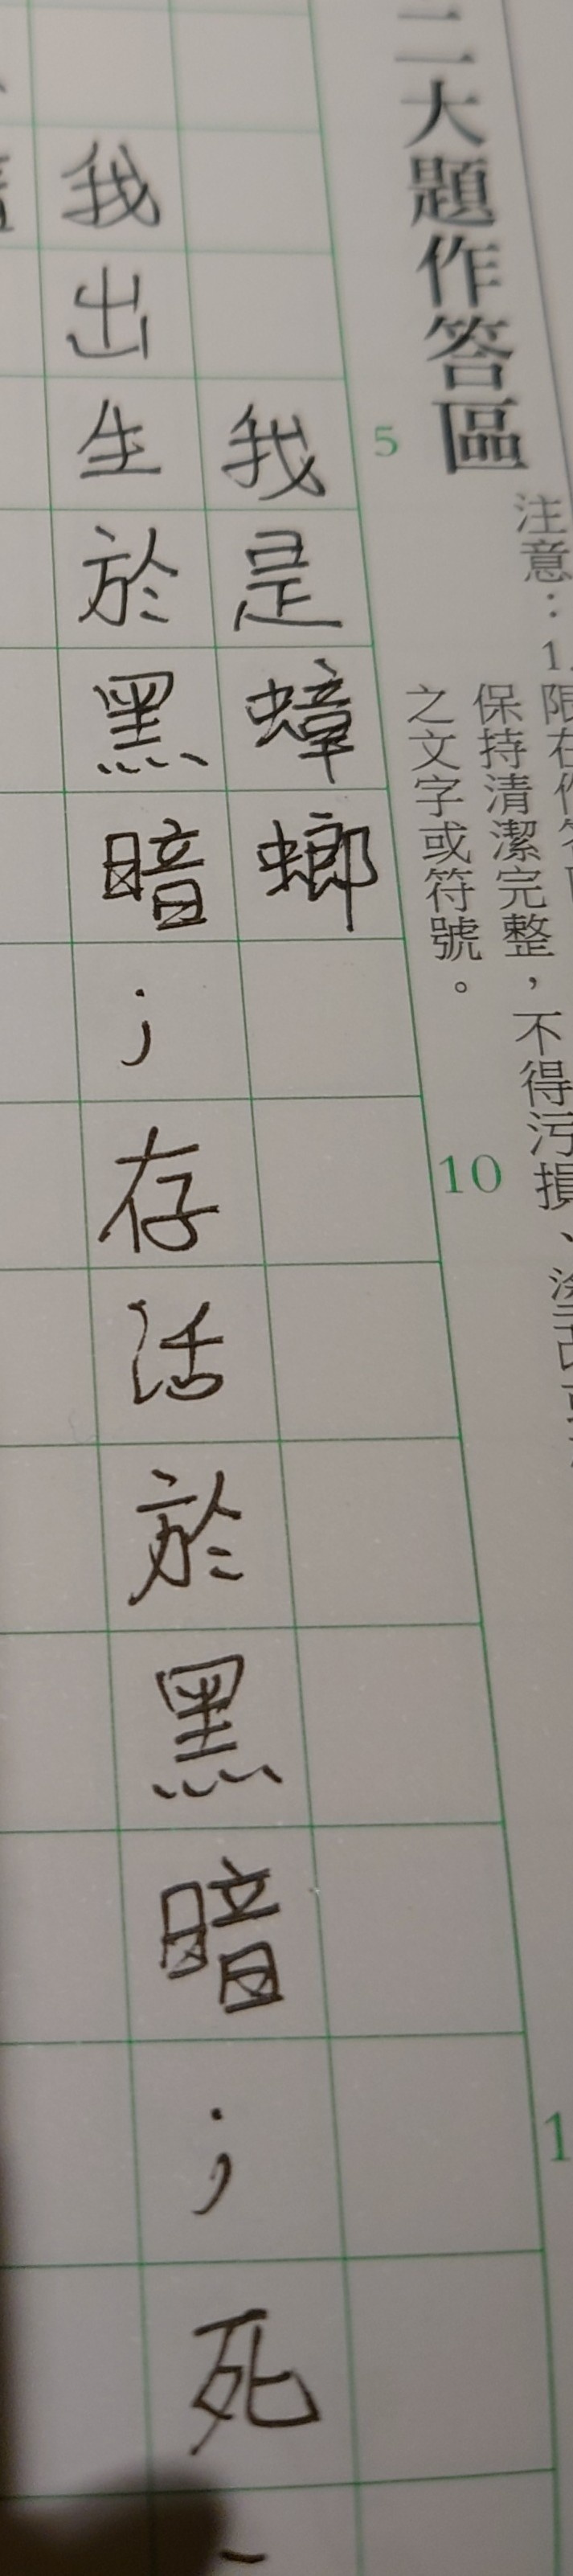 二大題作答區
注意：1.限在作答
保持清潔完整，不得污損、塗
之文字或符號。
5
10
1
我是蟑螂
我出生於黑暗；存活於黑暗；死